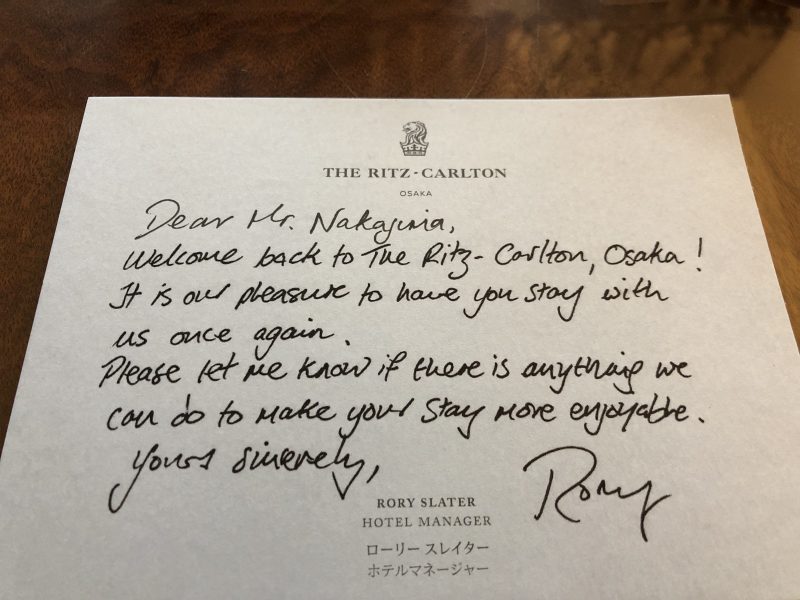 THE RITZ-CARLTON
OSAKA
Dear Mr. Nakajima,
Welcome back to The Ritz-Carlton, Osaka!
It is our pleasure to have you stay with
us once again.
Please let me know if there is anything we
can do to make your stay more enjoyable.
Yours sincerely,
Rory
RORY SLATER
HOTEL MANAGER
ローリー スレイター
ホテルマネージャー